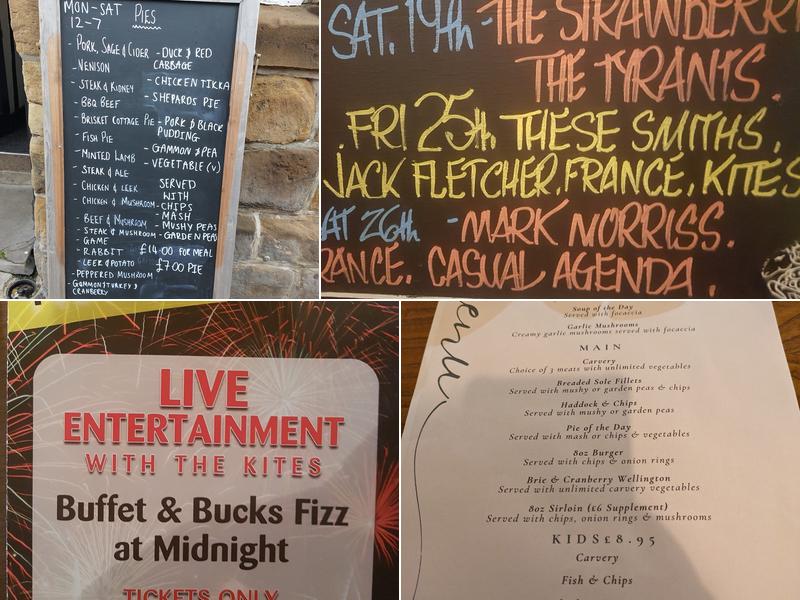 MON-SAT PIES
12-7
- PORK, SAGE & CIDER
- VENISON
- STEAK & KIDNEY
- BBQ BEEF
- BRISKET COTTAGE PIE
- FISH PIE
- MINTED LAMB
- STEAK & ALE
- CHICKEN & LEEK
- CHICKEN & MUSHROOM
- BEEF & MUSHROOM
- STEAK & MUSHROOM
- GAME
- RABBIT
- LEEK & POTATO
- PEPPERED MUSHROOM
- GAMMON & TURKEY &
CRANBERRY
- DUCK & RED
CABBAGE
- CHICKEN TIKKA
- SHEPARDS PIE
- PORK & BLACK
PUDDING
- GAMMON & PEA
- VEGETABLE (V)
SERVED
WITH
- CHIPS
- MASH
- MUSHY PEAS
- GARDEN PEAS
£14.00 FOR MEAL
£7.00 PIE
SAT. 19th - THE STRAWBERR
THE TYRANTS.
.FRI 25th. THESE SMITHS,
JACK FLETCHER, FRANCE, KITES
AT 26th - MARK NORRISS.
RANCE. CASUAL AGENDA.
LIVE
ENTERTAINMENT
WITH THE KITES
Buffet & Bucks Fizz
at Midnight
TICKETS ONLY
enu
Soup of the Day
Served with focaccia
Garlic Mushrooms
Creamy garlic mushrooms served with focaccia
MAIN
Carvery
Choice of 3 meats with unlimited vegetables
Breaded Sole Fillets
Served with mushy or garden peas & chips
Haddock & Chips
Served with mushy or garden peas
Pie of the Day
Served with mash or chips & vegetables
8oz Burger
Served with chips & onion rings
Brie & Cranberry Wellington
Served with unlimited carvery vegetables
8oz Sirloin (£6 Supplement)
Served with chips, onion rings & mushrooms
KIDS £8.95
Carvery
Fish & Chips